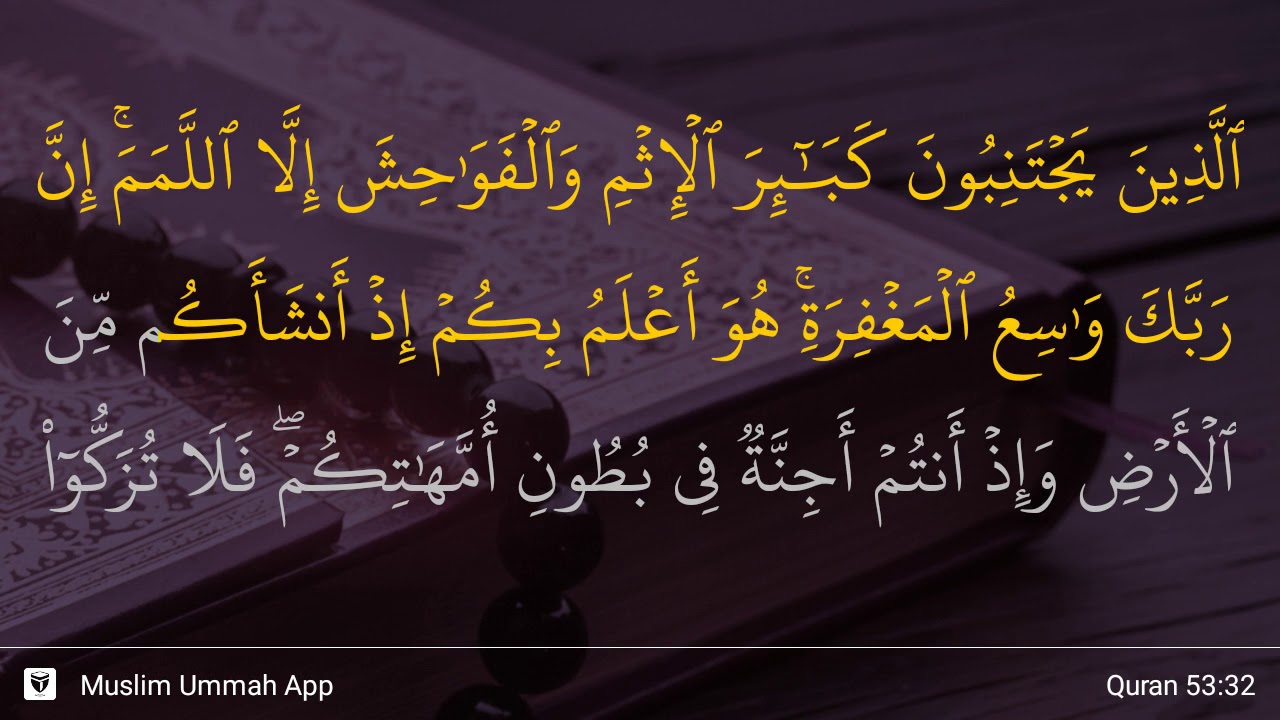 ٱلَّذِينَ يَجْتَنِبُونَ كَبَـٰٓئِرَ ٱلْإِثْمِ وَٱلْفَوَٰحِشَ إِلَّا ٱللَّمَمَ ۚ إِنَّ
رَبَّكَ وَٰسِعُ ٱلْمَغْفِرَةِ ۚ هُوَ أَعْلَمُ بِكُمْ إِذْ أَنشَأَكُم مِّنَ
ٱلْأَرْضِ وَإِذْ أَنتُمْ أَجِنَّةٌ فِى بُطُونِ أُمَّهَـٰتِكُمْ ۖ فَلَا تُزَكُّوٓا۟
Muslim Ummah App
Quran 53:32